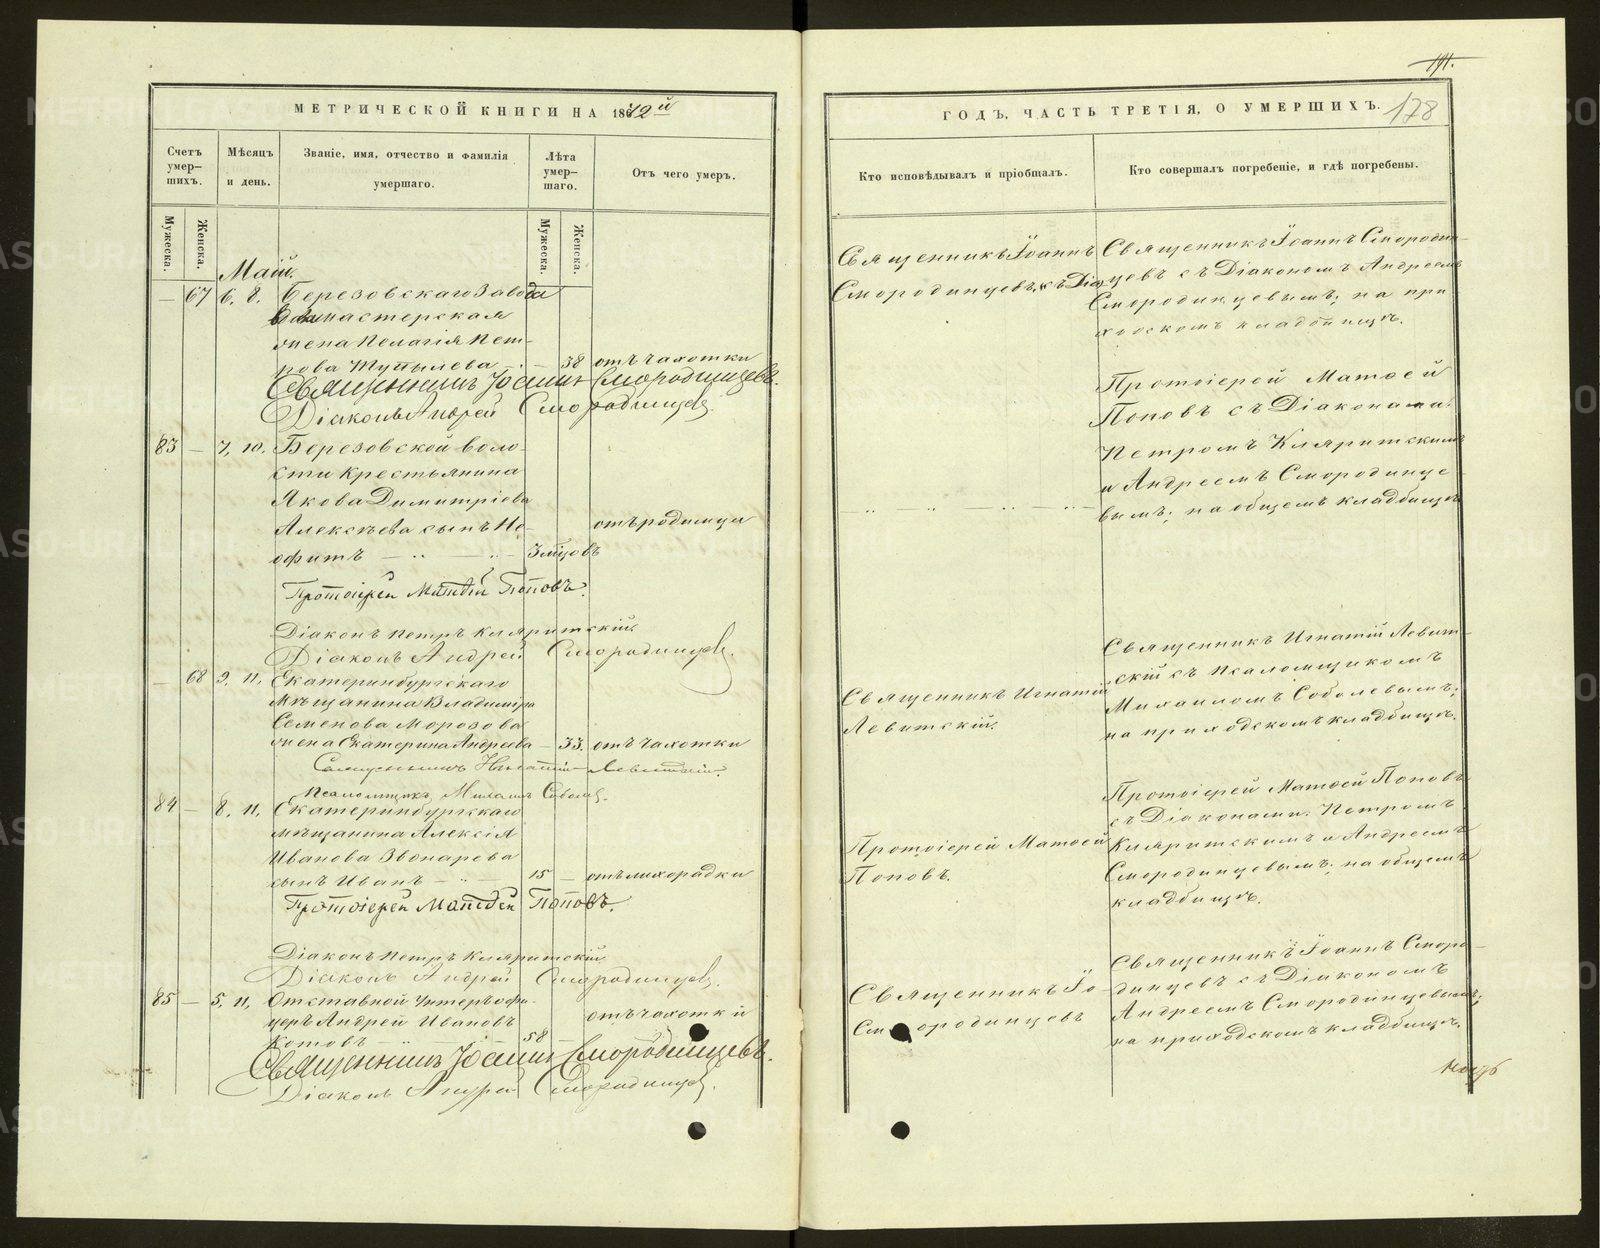 МЕТРИЧЕСКОЙ КНИГИ НА 1872й
Счетъ умер-шихъ.
Мѣсяцъ и день.
Званіе, имя, отчество и фамилія умершаго.
Лѣта умер-шаго.
Отъ чего умеръ.
Мужеска.
Женска.
Мужеска.
Женска.
Маій.
— 67 6. 8. Березовскаго Завода
мастерская
жена Пелагія Пет-
рова Тупылева — 38 отъ чахотки
Священникъ Іоаннъ Смородинцевъ.
Діаконъ Андрей Смородинцевъ.
83 — 7. 10. Березовской воло-
сти крестьянина
Якова Димитріева
Алексѣева сынъ Не- отъ родимца
офитъ — 3 мѣцовъ
Протоіерей Матѳей Поповъ.
Діаконъ Петръ Кляритскій.
Діаконъ Андрей Смородинцевъ.
— 68 9. 11. Екатеринбургскаго
Мѣщанина Владиміра
Семенова Морозова
жена Екатерина Андреева — 33. отъ чахотки
Священникъ Игнатій Левитскій.
Псаломщикъ Михаилъ Соболевъ.
84 — 8. 11. Екатеринбургскаго
мѣщанина Алексія
Иванова Звонарева
сынъ Иванъ — 15 — отъ лихорадки
Протоіерей Матѳей Поповъ.
Діаконъ Петръ Кляритскій
Діаконъ Андрей Смородинцевъ.
85 — 5. 11. Отставной Унтеръ офи-
церъ Андрей Ивановъ отъ чахотки
Котовъ — 58 —
Священникъ Іоаннъ Смородинцевъ.
Діаконъ Андрей Смородинцевъ.
171.
ГОДЪ, ЧАСТЬ ТРЕТІЯ, О УМЕРШИХЪ.
178
Кто исповѣдывалъ и пріобщалъ.
Кто совершалъ погребеніе, и гдѣ погребены.
Священникъ Іоаннъ
Смородинцевъ
Священникъ Іоаннъ Смородин-
цевъ съ Діакономъ Андреемъ
Смородинцевымъ; на при-
ходскомъ кладбищѣ.
Протоіерей Матѳей
Поповъ съ Діаконами:
Петромъ Кляритскимъ
и Андреемъ Смородинце-
вымъ; на общемъ кладбищѣ
Священникъ Игнатій
Левитскій.
Священникъ Игнатій Левит-
скій съ псаломщикомъ
Михаиломъ Соболевымъ;
на приходскомъ кладбищѣ.
Протоіерей Матѳей
Поповъ.
Протоіерей Матѳей Поповъ
съ Діаконами: Петромъ
Кляритскимъ и Андреемъ
Смородинцевымъ; на общемъ
кладбищѣ.
Священникъ Іо-
Смородинцевъ
Священникъ Іоаннъ Сморо-
динцевъ съ Діакономъ
Андреемъ Смородинцевымъ;
на приходскомъ кладбищѣ.